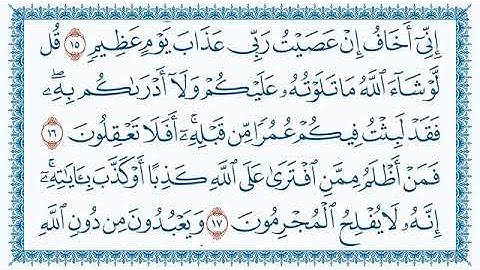 إِنِّىٓ أَخَافُ إِنْ عَصَيْتُ رَبِّى عَذَابَ يَوْمٍ عَظِيمٍ ١٥ قُل
لَّوْ شَآءَ ٱللَّهُ مَا تَلَوْتُهُۥ عَلَيْكُمْ وَلَآ أَدْرَىٰكُم بِهِۦۖ
فَقَدْ لَبِثْتُ فِيكُمْ عُمُرًا مِّن قَبْلِهِۦٓۚ أَفَلَا تَعْقِلُونَ ١٦
فَمَنْ أَظْلَمُ مِمَّنِ ٱفْتَرَىٰ عَلَى ٱللَّهِ كَذِبًا أَوْ كَذَّبَ بِـَٔايَٰتِهِۦٓۚ
إِنَّهُۥ لَا يُفْلِحُ ٱلْمُجْرِمُونَ ١٧ وَيَعْبُدُونَ مِن دُونِ ٱللَّهِ